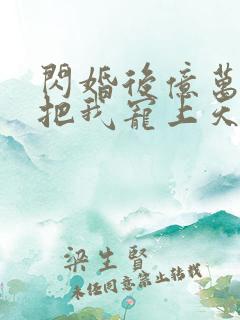 閃婚後億萬
把我寵上天
梁生賢
未經同意禁止轉載